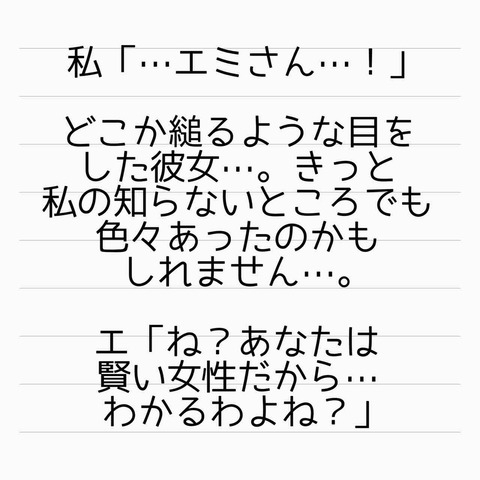 私「…エミさん…！」
どこか縋るような目を
した彼女…。きっと
私の知らないところでも
色々あったのかも
しれません…。
エ「ね？あなたは
賢い女性だから…
わかるわよね？」